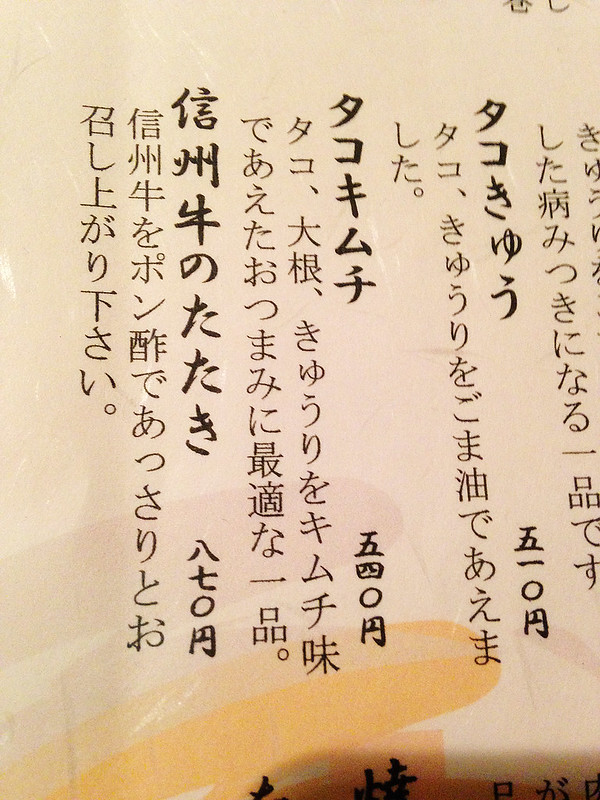 した病みつきになる一品です
タコきゅう 五一〇円
タコ、きゅうりをごま油であえま
した。
タコキムチ 五四〇円
タコ、大根、きゅうりをキムチ味
であえたおつまみに最適な一品。
信州牛のたたき 八七〇円
信州牛をポン酢であっさりとお
召し上がり下さい。